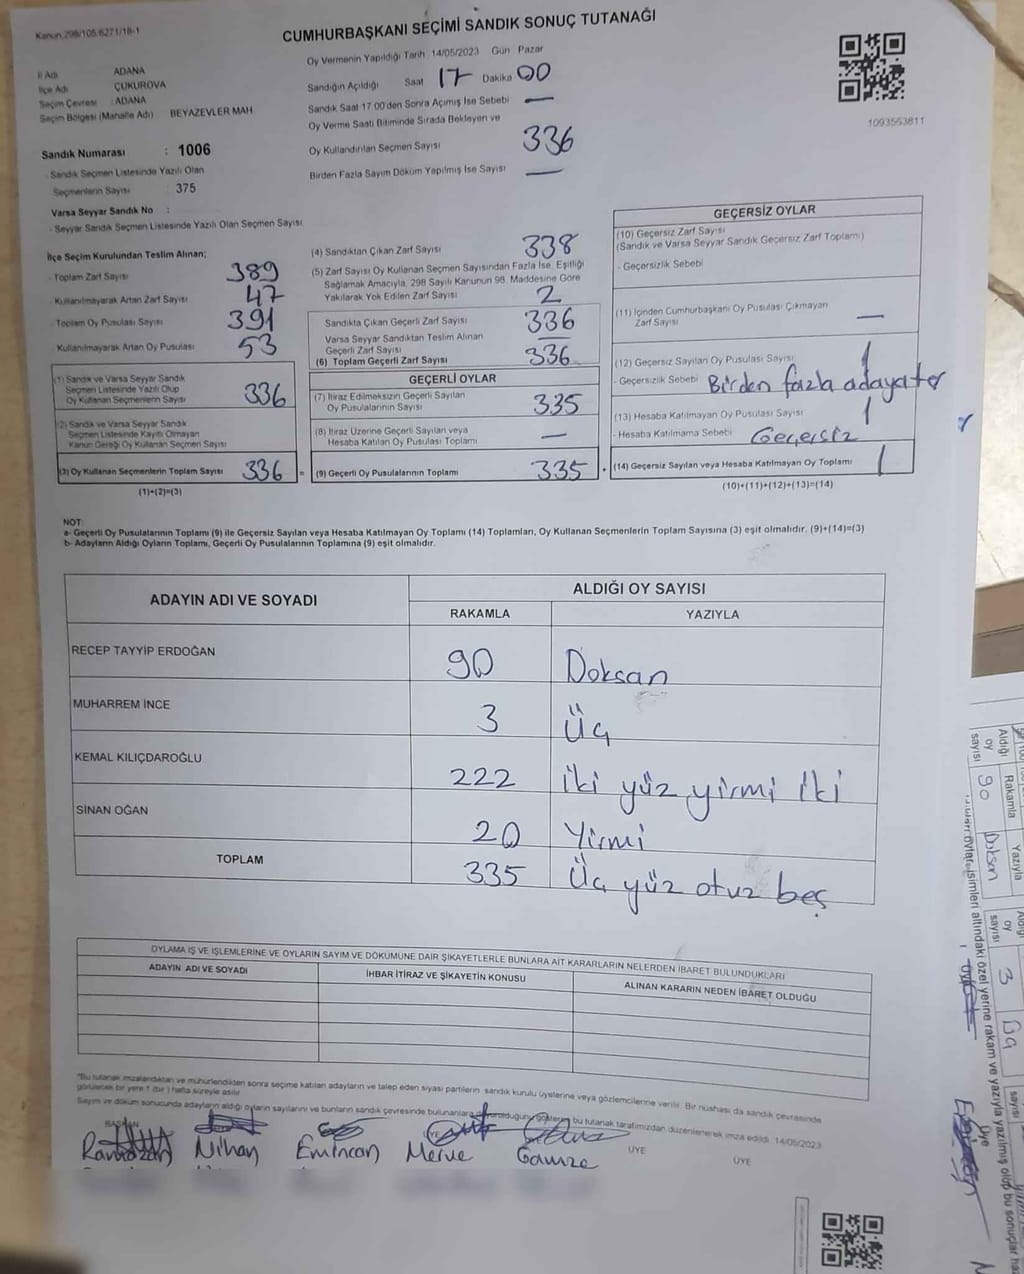 Kanun,298/105.6271/18-1
CUMHURBAŞKANI SEÇİMİ SANDIK SONUÇ TUTANAĞI
İl Adı ADANA
İlçe Adı ÇUKUROVA
Seçim Çevresi : ADANA
Seçim Bölgesi (Mahalle Adı) BEYAZEVLER MAH
Oy Vermenin Yapıldığı Tarih 14/05/2023 Gün : Pazar
Sandığın Açıldığı Saat 17 Dakika 00
Sandık Saat 17:00'den Sonra Açmış İse Sebebi —
Oy Verme Saati Bitiminde Sırada Bekleyen ve
Oy Kullandırılan Seçmen Sayısı 336
Birden Fazla Sayım Döküm Yapılmış İse Sayısı —
1093563811
Sandık Numarası : 1006
- Sandık Seçmen Listesinde Yazılı Olan
Seçmenlerin Sayısı : 375
Varsa Seyyar Sandık No :
- Seyyar Sandık Seçmen Listesinde Yazılı Olan Seçmen Sayısı
İlçe Seçim Kurulundan Teslim Alınan;
- Toplam Zarf Sayısı 389
- Kullanılmayarak Artan Zarf Sayısı 47
- Toplam Oy Pusulası Sayısı 391
Kullanılmayarak Artan Oy Pusulası 53
(1) Sandık ve Varsa Seyyar Sandık
Seçmen Listesinde Yazılı Olup
Oy Kullanan Seçmenlerin Sayısı 336
(2) Sandık ve Varsa Seyyar Sandık
Seçmen Listesinde Kayıtlı Olmayan
Kanun Gereği Oy Kullanan Seçmen Sayısı
(3) Oy Kullanan Seçmenlerin Toplam Sayısı 336 =
(1)+(2)=(3)
(4) Sandıktan Çıkan Zarf Sayısı 338
(5) Zarf Sayısı Oy Kullanan Seçmen Sayısından Fazla İse, Eşitliği
Sağlamak Amacıyla, 298 Sayılı Kanunun 98. Maddesine Göre
Yakılarak Yok Edilen Zarf Sayısı 2
Sandıkta Çıkan Geçerli Zarf Sayısı 336
Varsa Seyyar Sandıktan Teslim Alınan
Geçerli Zarf Sayısı —
(6) Toplam Geçerli Zarf Sayısı 336
GEÇERLİ OYLAR
(7) İtiraz Edilmeksizin Geçerli Sayılan
Oy Pusulalarının Sayısı 335
(8) İtiraz Üzerine Geçerli Sayılan veya
Hesaba Katılan Oy Pusulası Toplamı —
(9) Geçerli Oy Pusulalarının Toplamı 335 +
GEÇERSİZ OYLAR
(10) Geçersiz Zarf Sayısı
(Sandık ve Varsa Seyyar Sandık Geçersiz Zarf Toplamı)
- Geçersizlik Sebebi
(11) İçinden Cumhurbaşkanı Oy Pusulası Çıkmayan
Zarf Sayısı —
(12) Geçersiz Sayılan Oy Pusulası Sayısı 1
- Geçersizlik Sebebi Birden fazla adayater
(13) Hesaba Katılmayan Oy Pusulası Sayısı 1
- Hesaba Katılmama Sebebi Geçersiz
(14) Geçersiz Sayılan veya Hesaba Katılmayan Oy Toplamı 1
(10)+(11)+(12)+(13)=(14)
NOT:
a- Geçerli Oy Pusulalarının Toplamı (9) ile Geçersiz Sayılan veya Hesaba Katılmayan Oy Toplamı (14) Toplamları, Oy Kullanan Seçmenlerin Toplam Sayısına (3) eşit olmalıdır. (9)+(14)=(3)
b- Adayların Aldığı Oyların Toplamı, Geçerli Oy Pusulalarının Toplamına (9) eşit olmalıdır.
ADAYIN ADI VE SOYADI
ALDIĞI OY SAYISI
RAKAMLA YAZIYLA
RECEP TAYYİP ERDOĞAN 90 Doksan
MUHARREM İNCE 3 Üç
KEMAL KILIÇDAROĞLU 222 İki yüz yirmi İki
SİNAN OĞAN 20 Yirmi
TOPLAM 335 Üç yüz otuz beş
OYLAMA İŞ VE İŞLEMLERİNE VE OYLARIN SAYIM VE DÖKÜMÜNE DAİR ŞİKAYETLERLE BUNLARA AİT KARARLARIN NELERDEN İBARET BULUNDUKLARI
ADAYIN ADI VE SOYADI İHBAR İTİRAZ VE ŞİKAYETİN KONUSU ALINAN KARARIN NEDEN İBARET OLDUĞU
"Bu tutanak imzalandıktan ve mühürlendikten sonra seçime katılan adayların ve talep eden siyasi partilerin sandık kurulu üyelerine veya gözlemcilerine verilir. Bir nüshası da sandık çevresinde
görülecek bir yere 1 (bir) hafta süreyle asılır
Sayım ve döküm sonucunda adayların aldığı oyların sayılarını ve bunların sandık çevresinde bulunanlara duyurulduğunu gösteren bu tutanak tarafımızdan düzenlenerek imza edildi. 14/05/2023
BAŞKAN
Ramazan Nihan Emincan Merve Gamze
ÜYE ÜYE
Aldığı oy sayısı 90
Rakamla
Yazıyla
Doksan
oy sayısı 3
Üç
sayısı
isimleri altındaki özel yerine rakam ve yazıyla yazılmış olup bu sonuçlar
Üye